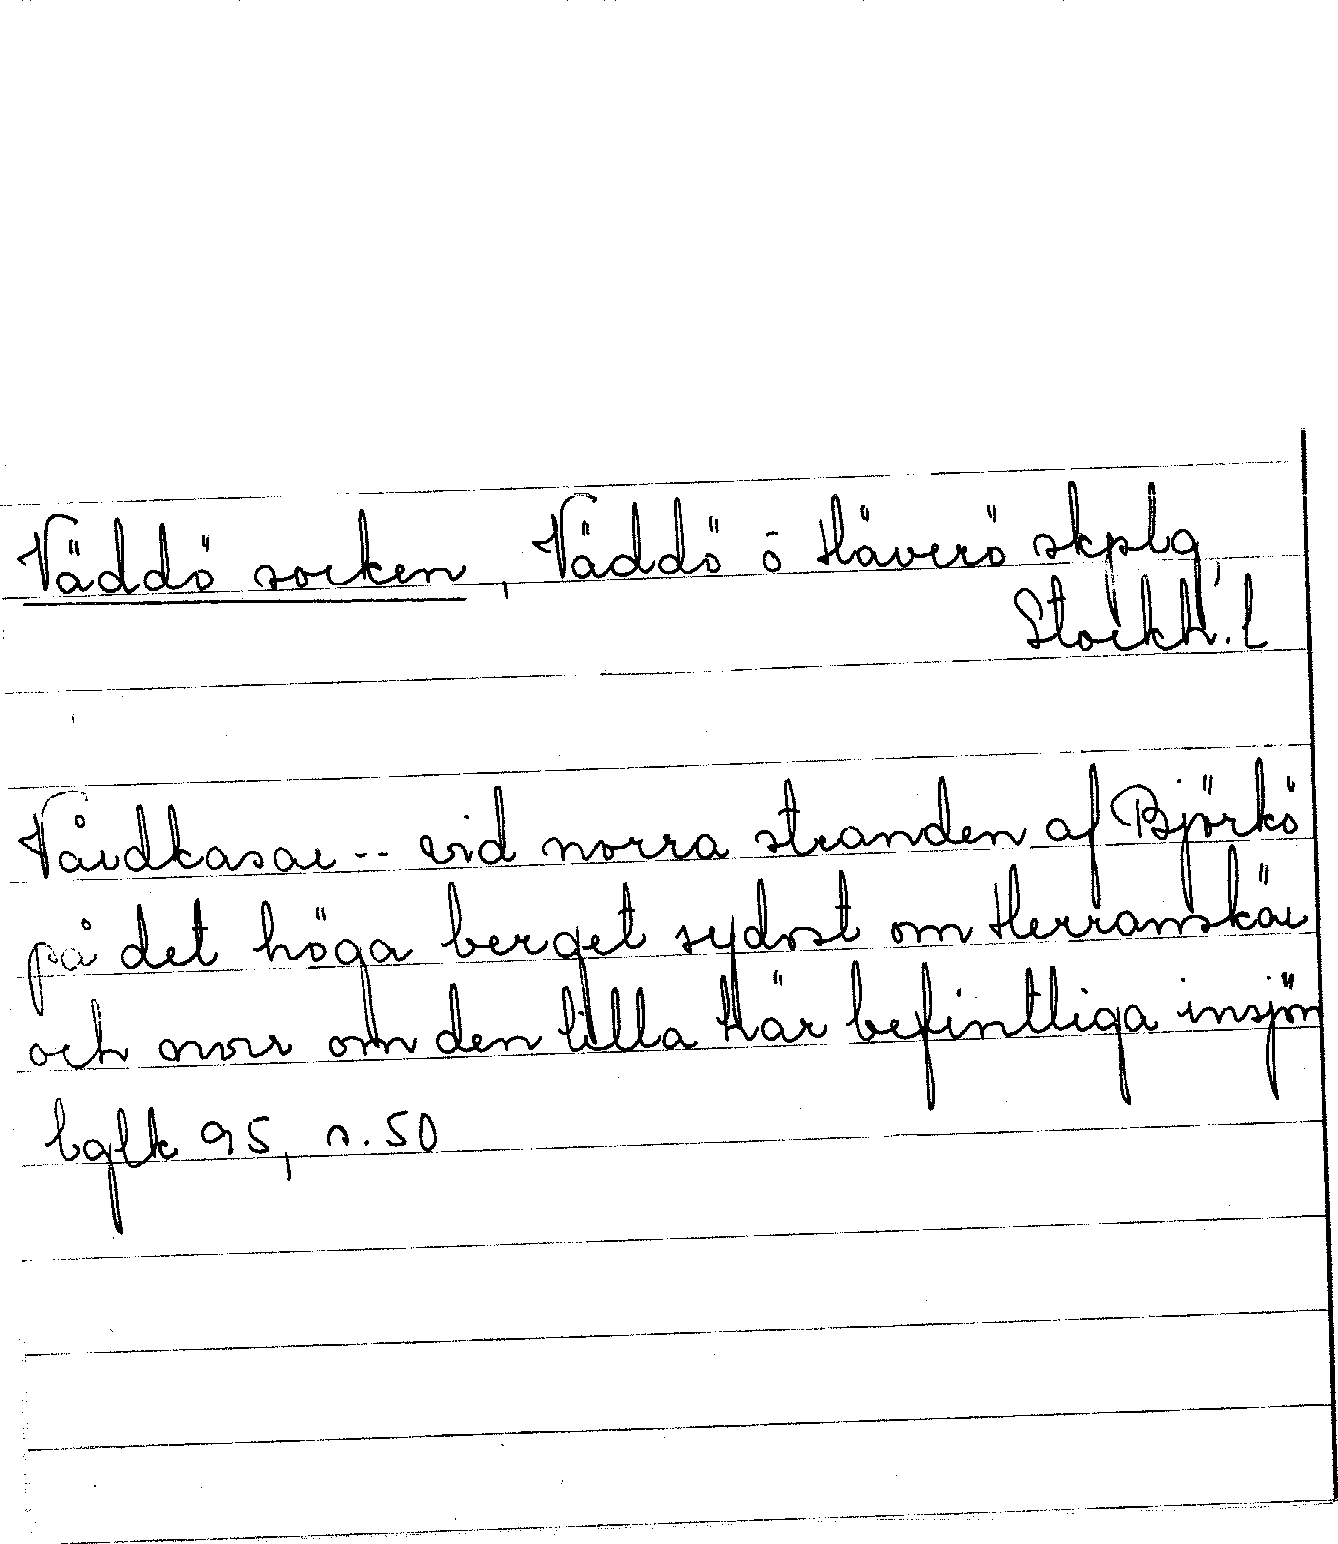 Väddö socken, Väddö o Häverö skplg,
Stockh. l
Vårdkasar -- vid norra stranden af Björkö
på det höga berget sydost om Herramskär
och norr om den lilla här befintliga insjön
bglk 95, s. 50